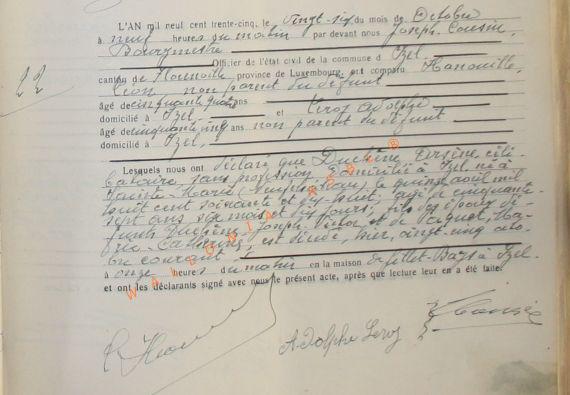 L'AN mil neuf cent trente-cinq, le vingt-six du mois de Octobre
à neuf heures du matin par devant nous Joseph Cousin,
Bourgmestre
Officier de l'état civil de la commune d' Izel
22
canton de Florenville, province de Luxembourg, ont comparu
Léon, non parent du défunt
âgé de cinquante quatre ans
domicilié à Izel, et Leroy Adolphe
âgé de cinquante cinq ans non parent du défunt
domicilié à Izel,
Lesquels nous ont déclaré que Duchêne céli-
bataire, sans profession, domicilié à Izel né à
Sainte-Marie le quinze avril mil
huit cent soixante et dix-huit, âgé de cinquante-
sept ans six mois et dix jours, fils des époux dé-
funts Duchêne, Joseph-Victor et de Paquet, Ma-
rie-Catherine, est décédé, hier, vingt-cinq octo-
bre courant
à onze heures du matin en la maison de Gillet-Bays à Izel.
et ont les déclarants signé avec nous le présent acte, après que lecture leur en a été faite.
Adolphe Leroy
WALDONIA ASBL ®